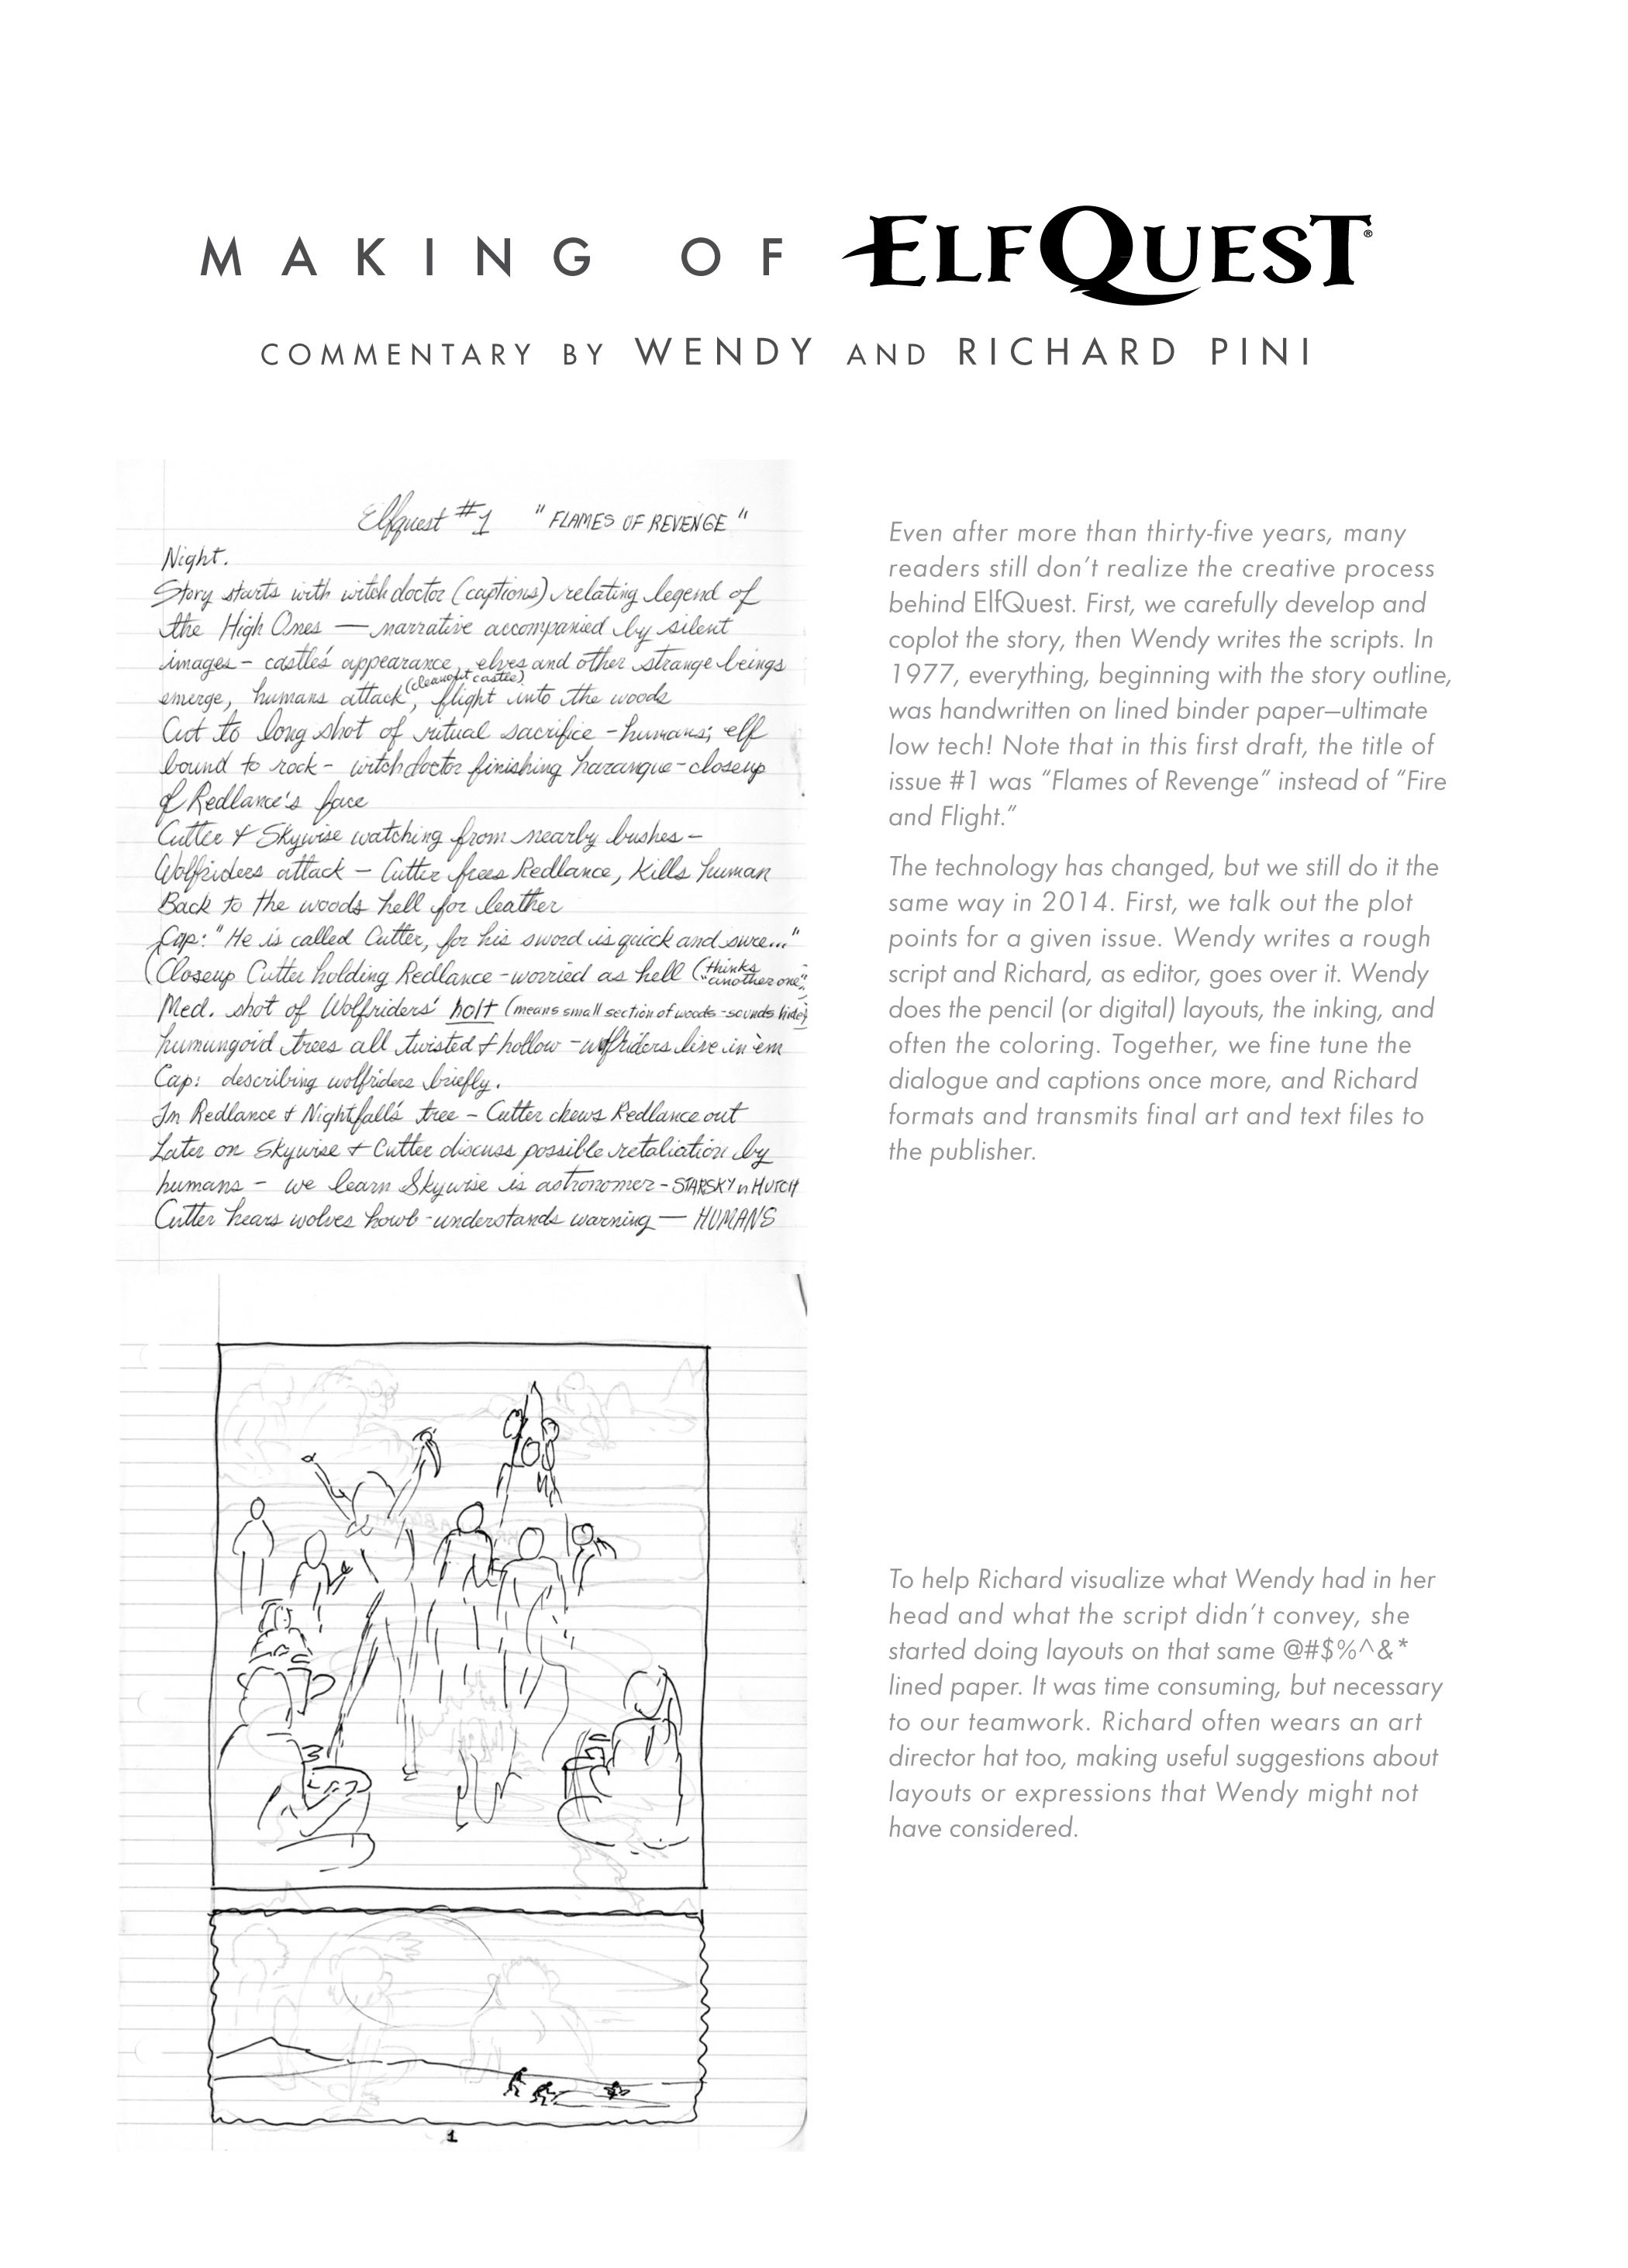 MAKING OF ELFQUEST®
COMMENTARY BY WENDY AND RICHARD PINI
Elfquest #1 "FLAMES OF REVENGE"
Night.
Story starts with witch doctor (captions) relating legend of
the High Ones — narrative accompanied by silent
images - castle's appearance, elves and other strange beings
emerge, humans attack (clean out castle), flight into the woods
Cut to long shot of ritual sacrifice - humans; elf
bound to rock - witch doctor finishing harangue - closeup
of Redlance's face
Cutter & Skywise watching from nearby bushes -
Wolfriders attack - Cutter frees Redlance, Kills human
Back to the woods hell for leather
Cap: "He is called Cutter, for his sword is quick and sure..."
(Closeup Cutter holding Redlance - worried as hell (thinks "another one"
Med. shot of Wolfriders' holt (means small section of woods - sounds
humungoid trees all twisted & hollow - wolfriders live in 'em
Cap: describing wolfriders briefly.
In Redlance & Nightfall's tree - Cutter chews Redlance out
Later on Skywise & Cutter discuss possible retaliation by
humans - we learn Skywise is astronomer - STARSKY n HUTCH
Cutter hears wolves howl - understands warning — HUMANS
Even after more than thirty-five years, many
readers still don't realize the creative process
behind ElfQuest. First, we carefully develop and
coplot the story, then Wendy writes the scripts. In
1977, everything, beginning with the story outline,
was handwritten on lined binder paper—ultimate
low tech! Note that in this first draft, the title of
issue #1 was “Flames of Revenge” instead of “Fire
and Flight.”
The technology has changed, but we still do it the
same way in 2014. First, we talk out the plot
points for a given issue. Wendy writes a rough
script and Richard, as editor, goes over it. Wendy
does the pencil (or digital) layouts, the inking, and
often the coloring. Together, we fine tune the
dialogue and captions once more, and Richard
formats and transmits final art and text files to
the publisher.
To help Richard visualize what Wendy had in her
head and what the script didn't convey, she
started doing layouts on that same @#$%^&*
lined paper. It was time consuming, but necessary
to our teamwork. Richard often wears an art
director hat too, making useful suggestions about
layouts or expressions that Wendy might not
have considered.
1